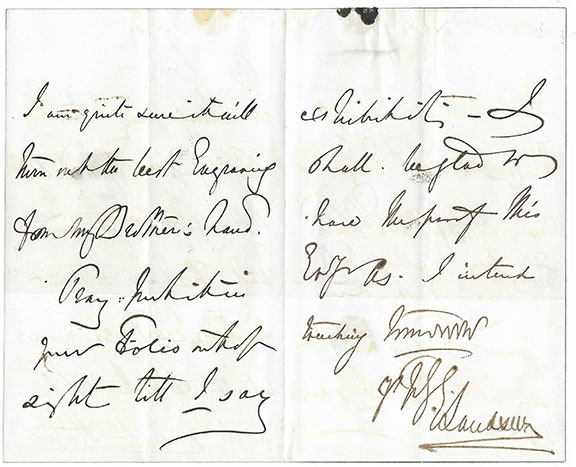 I am quite sure it will
turn out the best Engraving
from my Brother's hand.
Pray put it in
your Folio out of
sight till I say
exhibit it – I
shall be glad to
have the proof this
Evg as I intend
touching tomorrow